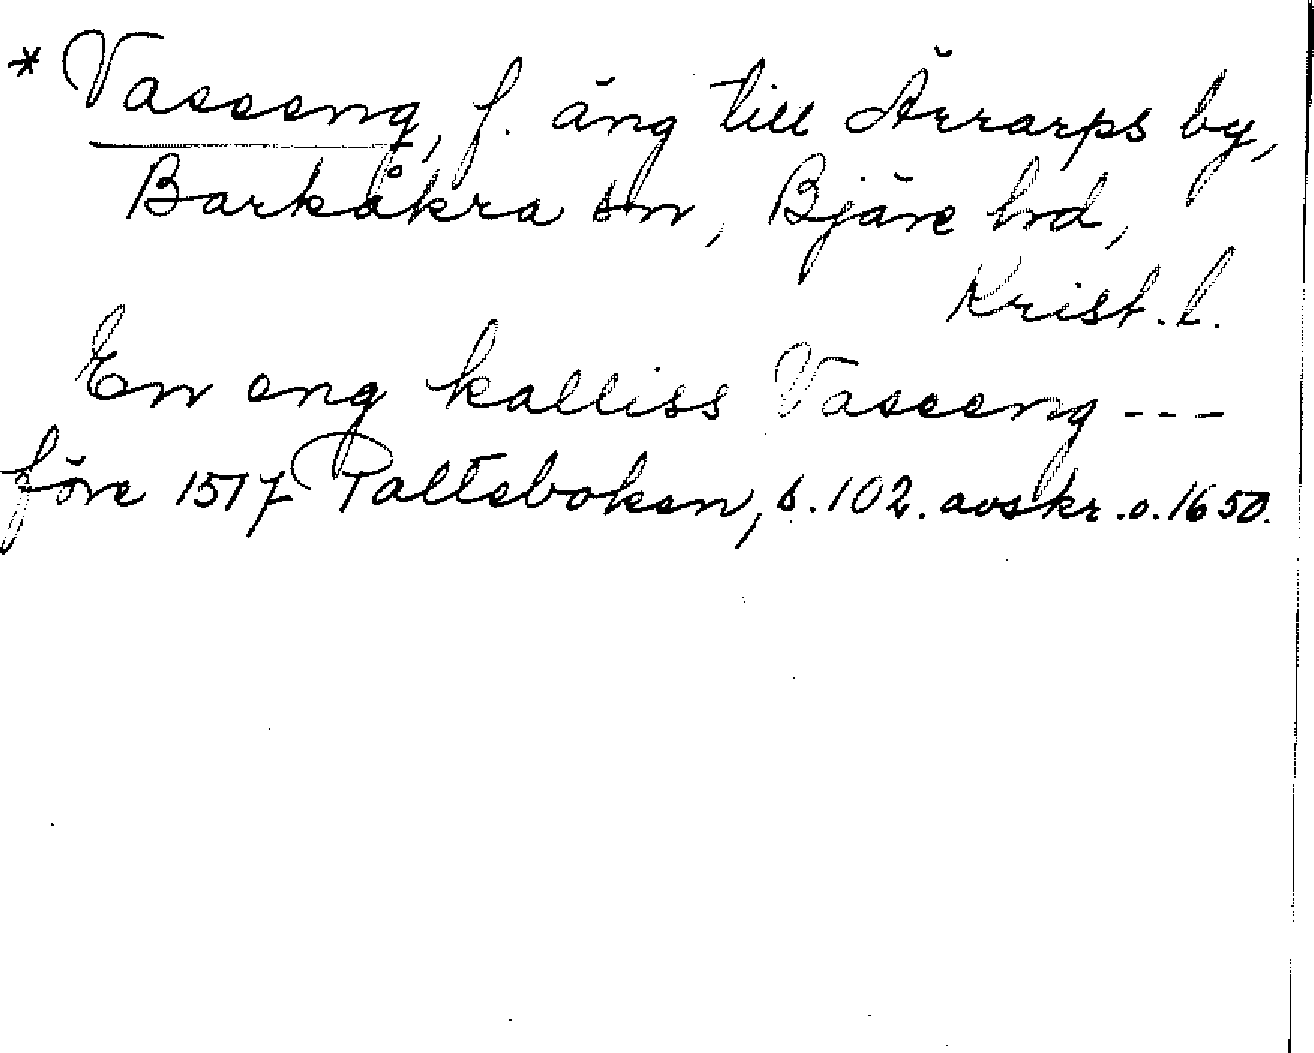 * Vasseng, f. äng till Ärrarps by,
Barkåkra sn, Bjäre hd,
Krist. l.
En eng kalliss Vasseng ---
före 1517 Palteboken, s. 102. avskr. o. 1650.